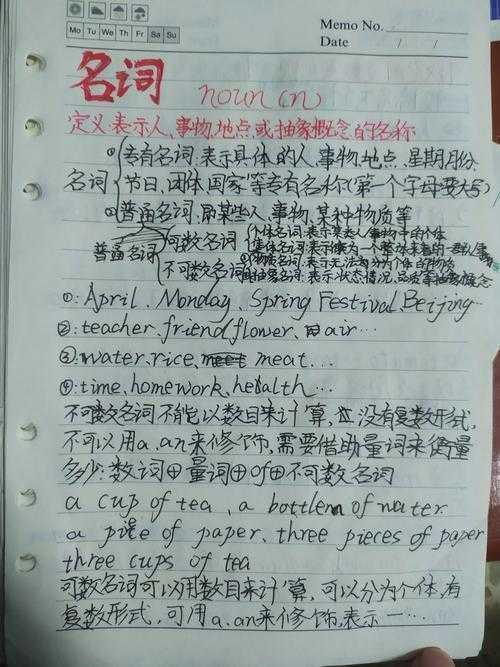 Memo No.
Mo Tu We Th Fr Sa Su
Date / /
名词 noun (n)
定义:表示人、事物、地点或抽象概念的名称
①专有名词:表示具体的人、事物、地点、星期月份、
名词
节日、团体、国家等专有名称(第一个字母要大写)
②普通名词:某些人、事物、某种物质等
普通名词
可数名词
个体名词:表示某类人事物中的个体
集体名词:表示作为一个整体来看的一群人事物
不可数名词
物质名词:表示无法分为个体的物质
抽象名词:表示状态情况、品质等抽象概念
①:April、Monday、Spring Festival、Beijing…
②:teacher、friend、flower、air…
③:water、rice、meat…
④:time、homework、health…
不可数名词不能以数目来计算,没有复数形式,
不可以用a、an来修饰,需要借助量词来衡量
多少:数词⊕量词⊕of⊕不可数名词
a cup of tea、a bottle of water
a piece of paper、three pieces of paper
three cups of tea
可数名词可以用数目来计算,可以分为个体,有
复数形式,可用a、an来修饰,表示一…